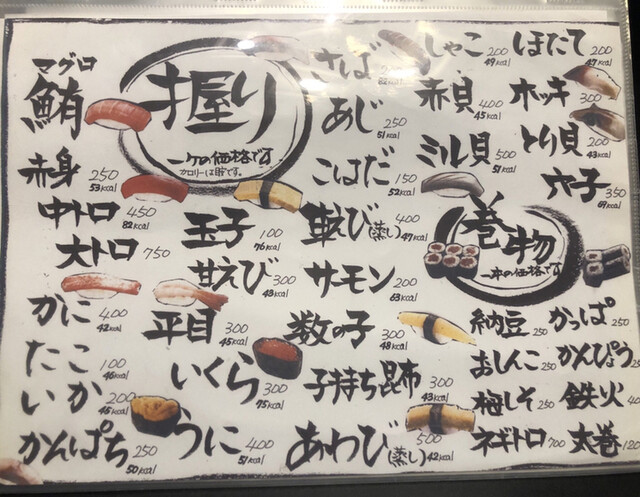 握り
一ケの価格です
カロリーは1貫です。
マグロ
鮪
赤身 250 53kcal
中トロ 450 82kcal
大トロ 750
かに 400 42kcal
たこ 100 46kcal
いか 200 45kcal
かんぱち 250 50kcal
玉子 100 76kcal
甘えび 300 43kcal
平目 300 45kcal
いくら 300 75kcal
うに 400 51kcal
さば
あじ 250 51kcal
こはだ 150 52kcal
車えび(蒸し) 400 47kcal
サーモン 200 63kcal
数の子 300 48kcal
子持ち昆布 300 43kcal
あわび(蒸し) 500 42kcal
しゃこ 200 49kcal
赤貝 400 45kcal
ミル貝 500 51kcal
ほたて 200 47kcal
ホッキ 300
とり貝 200 43kcal
穴子 350 69kcal
巻物
一本の価格です
納豆 250
おしんこ 250
梅しそ 250
ネギトロ 700
かっぱ 250
かんぴょう
鉄火
太巻